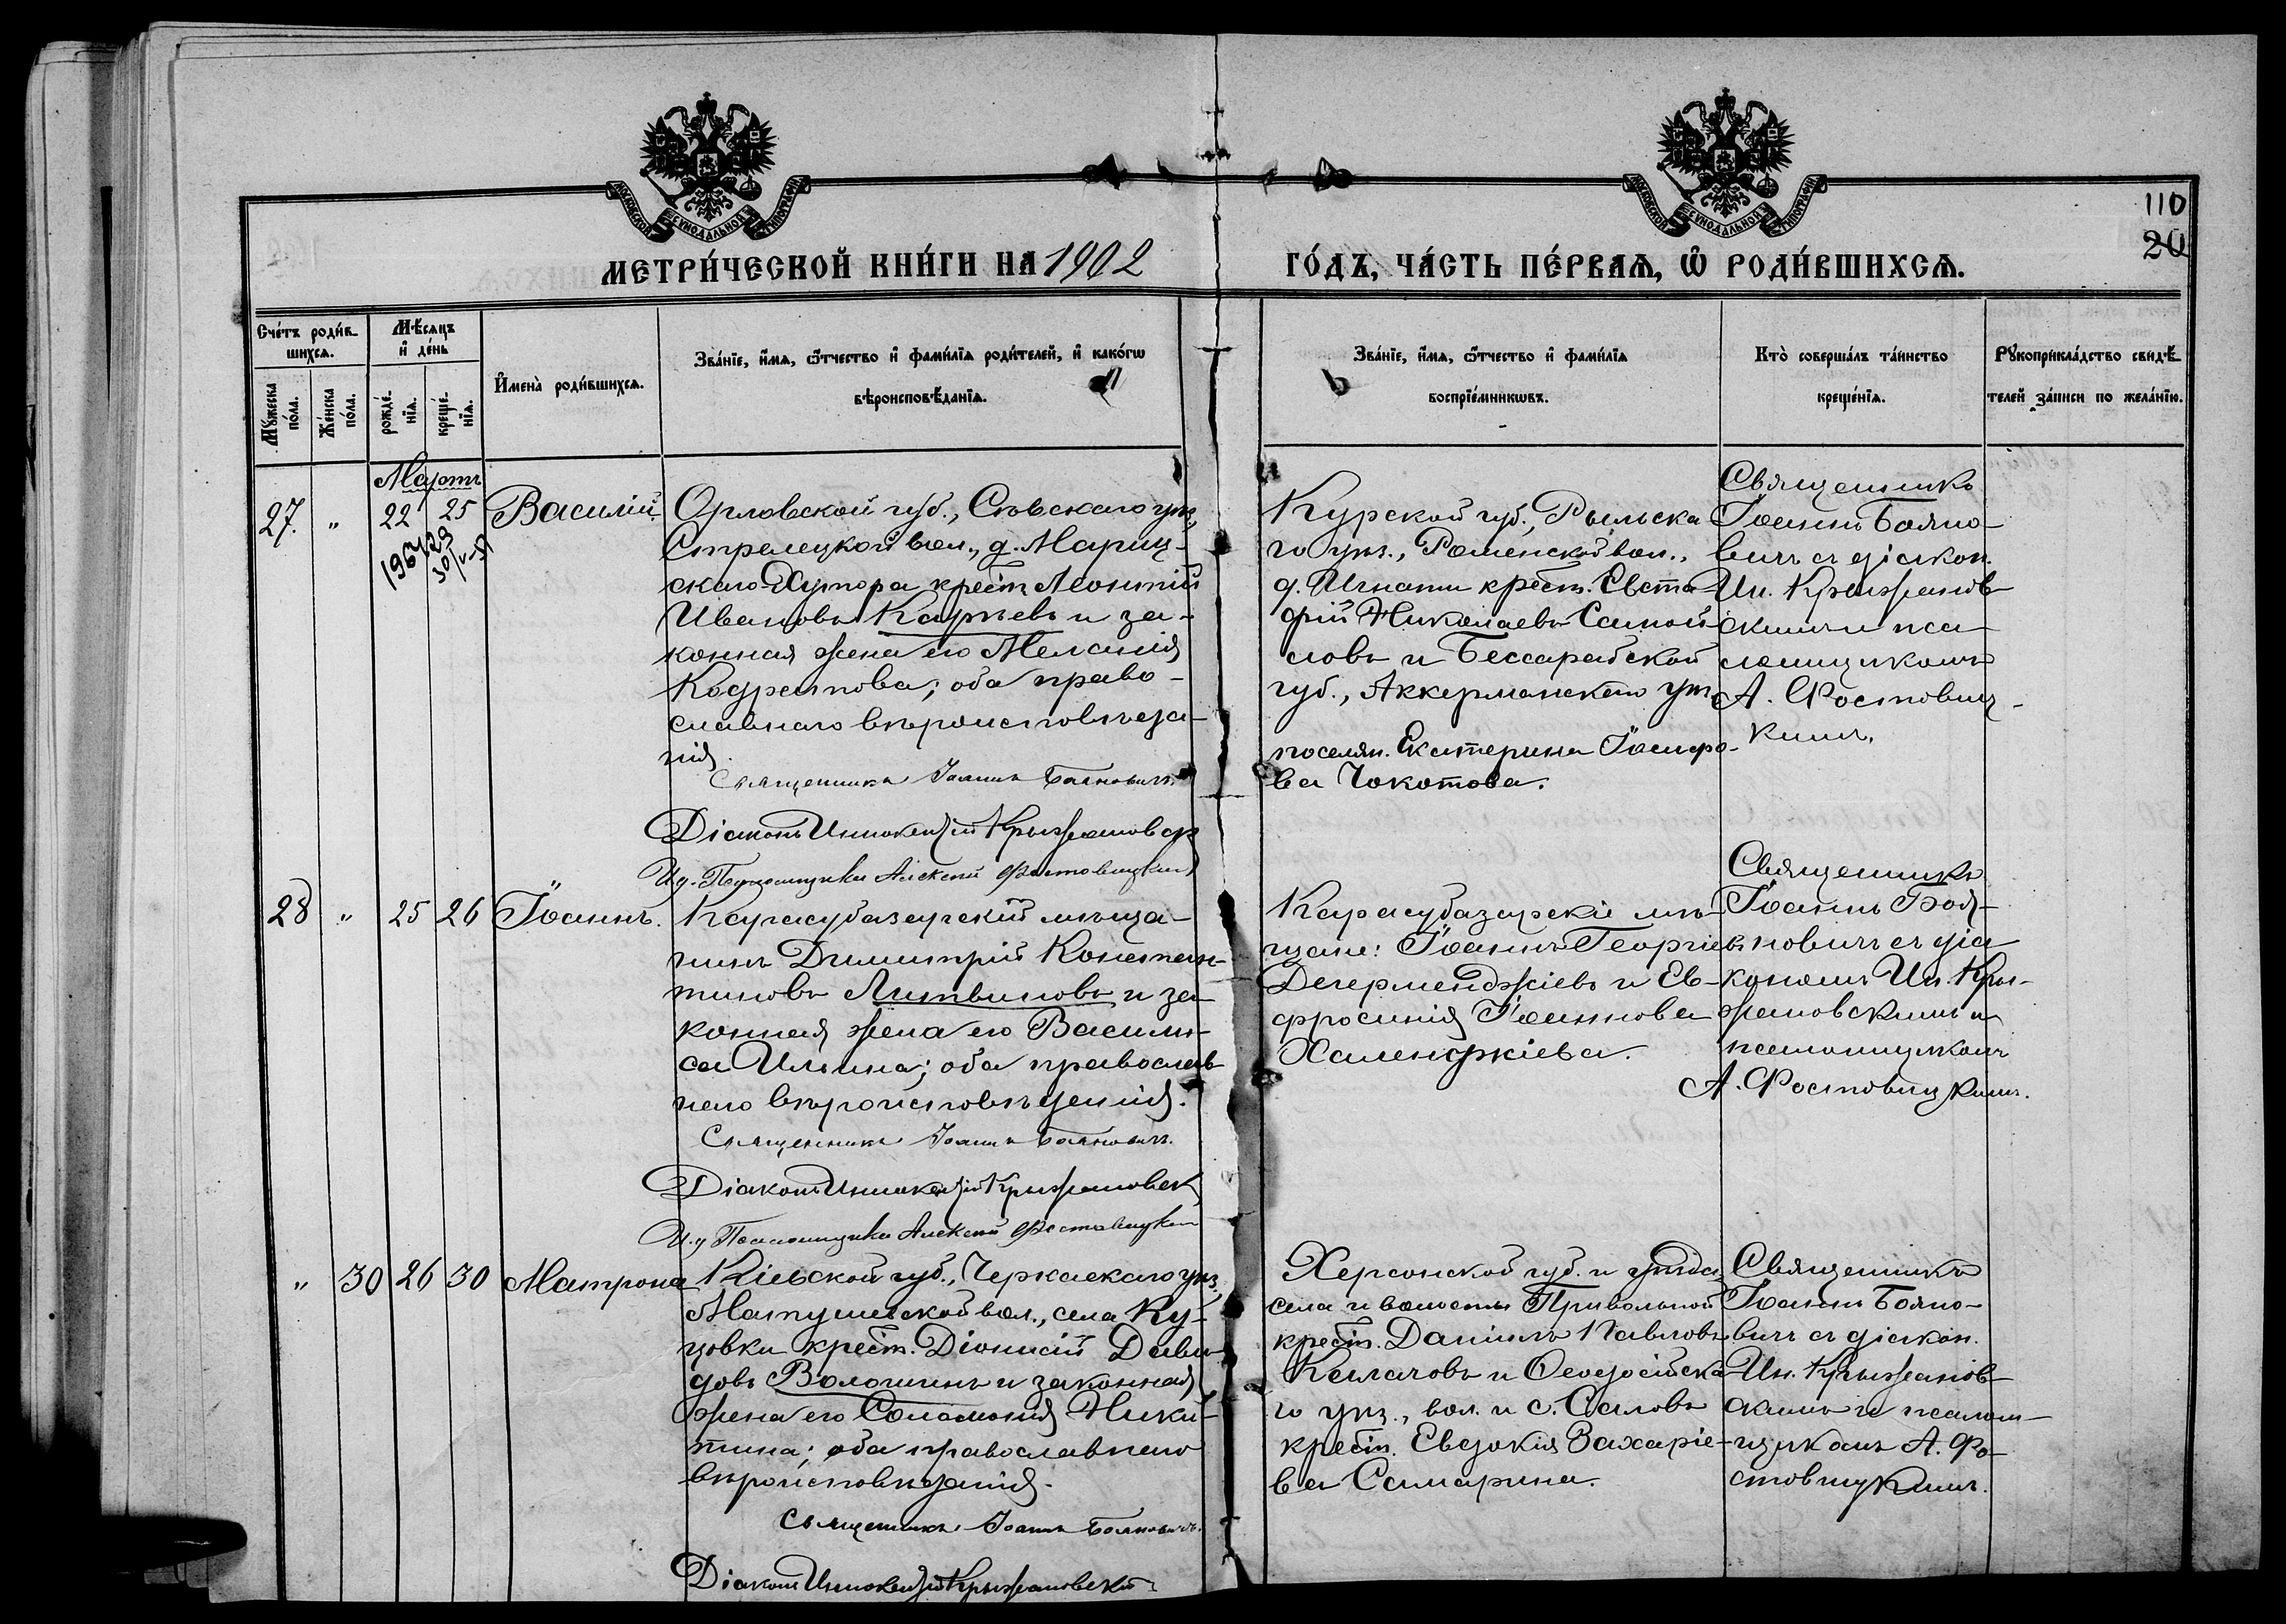 МОСКОВСКОЙ СѴНОДАЛЬНОЙ ТИПОГРАФІИ
МОСКОВСКОЙ СѴНОДАЛЬНОЙ ТИПОГРАФІИ
110
20
МЕТРИ́ЧЕСКОЙ КНИ́ГИ НА 1902
ГО́ДЪ, ЧА́СТЬ ПЕ́РВАѦ, Ѡ҆ РОДИ́ВШИХСѦ.
Сче́тъ роди́в-
шихсѧ.
Мꙋ́жеска по́ла.
Же́нска по́ла.
Мѣ́сяцъ
и҆ де́нь
рожде́-
нїѧ.
креще́-
нїѧ.
И҆мена̀ роди́вшихсѧ.
Зва́нїе, и҆́мѧ, ѻ҆́тчество и҆ фами́лїѧ роди́телей, и҆ како́гѡ
вѣроисповѣ́данїѧ.
Зва́нїе, и҆́мѧ, ѻ҆́тчество и҆ фами́лїѧ
воспрїе́мникѡвъ.
Кто̀ соверша́лъ та́инство
креще́нїѧ.
Рꙋкоприкла́дство свидѣ́-
телей за́писи по жела́нїю.
Мартъ
27. " 22 25 Василій.
Орловской губ., Сѣвскаго уѣз.,
Стрелецкой вол., д. Мариц-
скаго Хутора крест. Леонтій
Ивановъ Карпѣевъ и за-
конная жена его Меланія
Кодратова; оба право-
славнаго вѣроисповѣда-
нія.
Священникъ Іоаннъ Бояновичъ.
Діаконъ Иннокентій Крыжановск
И.д. Псаломщика Алексій Фостовицкій
Курской губ., Рыльска-
го уѣз., Роменской вол.,
д. Игнати крест. Евста-
фій Николаевъ Самой-
ловъ и Бессарабской
губ., Аккерманскаго уѣз.
поселян. Екатерина Іосифо-
ва Чокотова.
Священникъ
Іоаннъ Бояно-
вичъ съ діакон.
Ин. Крыжанов-
скимъ и пса-
ломщикомъ
А. Фостовиц-
кимъ.
28 " 25 26 Іоаннъ.
Карасубазарскій мѣща-
нинъ Димитрій Констан-
тиновъ Литвиновъ и за-
конная жена его Васили-
са Ильина; оба православ-
наго вѣроисповѣданія.
Священникъ Іоаннъ Бояновичъ.
Діаконъ Иннокентій Крыжановск
И.д Псаломщика Алексій Фостовицкій
Карасубазарскіе мѣ-
щане: Іоаннъ Георгіев.
Дегерменджіевъ и Ев-
фросинія Іоаннова
Халенджіева.
Священникъ
Іоаннъ Боя-
новичъ съ діа
кономъ Ин. Кры-
жановскимъ и
псаломщикомъ
А. Фостовицкимъ.
" 30 26 30 Матрона
Кіевской губ., Черкаскаго уѣз.,
Матушевской вол., села Ку-
цовки крест. Діонисій Дави-
довъ Волошинъ и законная
жена его Соломонія Ники-
тина; оба православнаго
вѣроисповѣданія.
Священникъ Іоаннъ Бояновичъ.
Діаконъ Иннокентій Крыжановскій
Херсонской губ. и уѣзда,
села и волости Привольной
крест. Даніилъ Павловъ
Калачовъ и Ѳеодосійска-
го уѣз., вол. и с. Саловъ
крест. Евдокія Захаріе-
ва Самарина.
Священникъ
Іоаннъ Бояно-
вичъ съ діакон.
Ин. Крыжанов-
скимъ и псалом-
щикомъ А. Фо-
стовицкимъ.